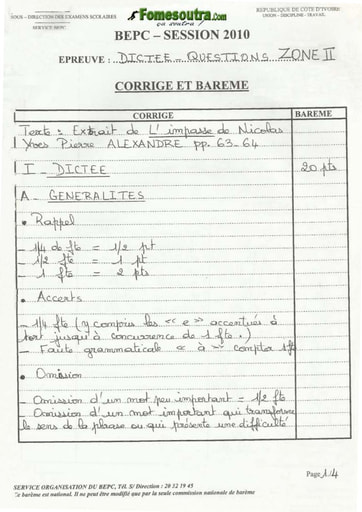 SOUS – DIRECTION DES EXAMENS SCOLAIRES
SERVICE BEPC
Fomesoutra.com
ça soutra !
REPUBLIQUE DE COTE D'IVOIRE
UNION – DISCIPLINE – TRAVAIL
BEPC – SESSION 2010
EPREUVE : DICTEE - QUESTIONS ZONE II
CORRIGE ET BAREME
CORRIGE BAREME
Texte : Extrait de L'impasse de Nicolas
Yves Pierre ALEXANDRE pp. 63-64
I - DICTEE 20 pts
A - GENERALITES
• Rappel
- 1/4 de fte = 1/2 pt
- 1/2 fte = 1 pt
- 1 fte = 2 pts
• Accents
- 1/4 fte (y compris les « e » accentués à
tort jusqu'à concurrence de 1 fte.)
- Faute grammaticale « à » compter 1 fte
• Omission
- Omission d'un mot peu important = 1/2 fte
- Omission d'un mot important qui transforme
le sens de la phrase ou qui présente une difficulté
Page 1/4
SERVICE ORGANISATION DU BEPC, Tél. S/ Direction : 20 32 19 45
Ce barème est national. Il ne peut être modifié que par la seule commission nationale de barème